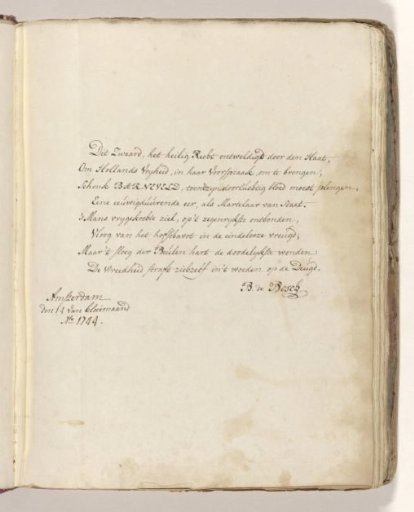 Dit Zwaard, het heilig Recht ontweldigd door den Haat,
Om Hollands Vryheid, in haar Voorspraak, om te brengen,
Schonk BARNEVELD, toen zyn doorluchtig bloed moest plengen,
Eene eeuwigduurende eer, als Martelaar van Staat.
's Mans vrygevochte ziel, op 't zegenrykste ontbonden,
Vloog van het hofschavot in de eindelooze vreugd,
Maar 't sloeg der Beulen hart de doodelykste wonden.
De Wreedheid straft zichzelf in 't woeden op de Deugd.
B. de Bosch
Amsterdam
den 14 van Bloeimaand
Ao. 1744.